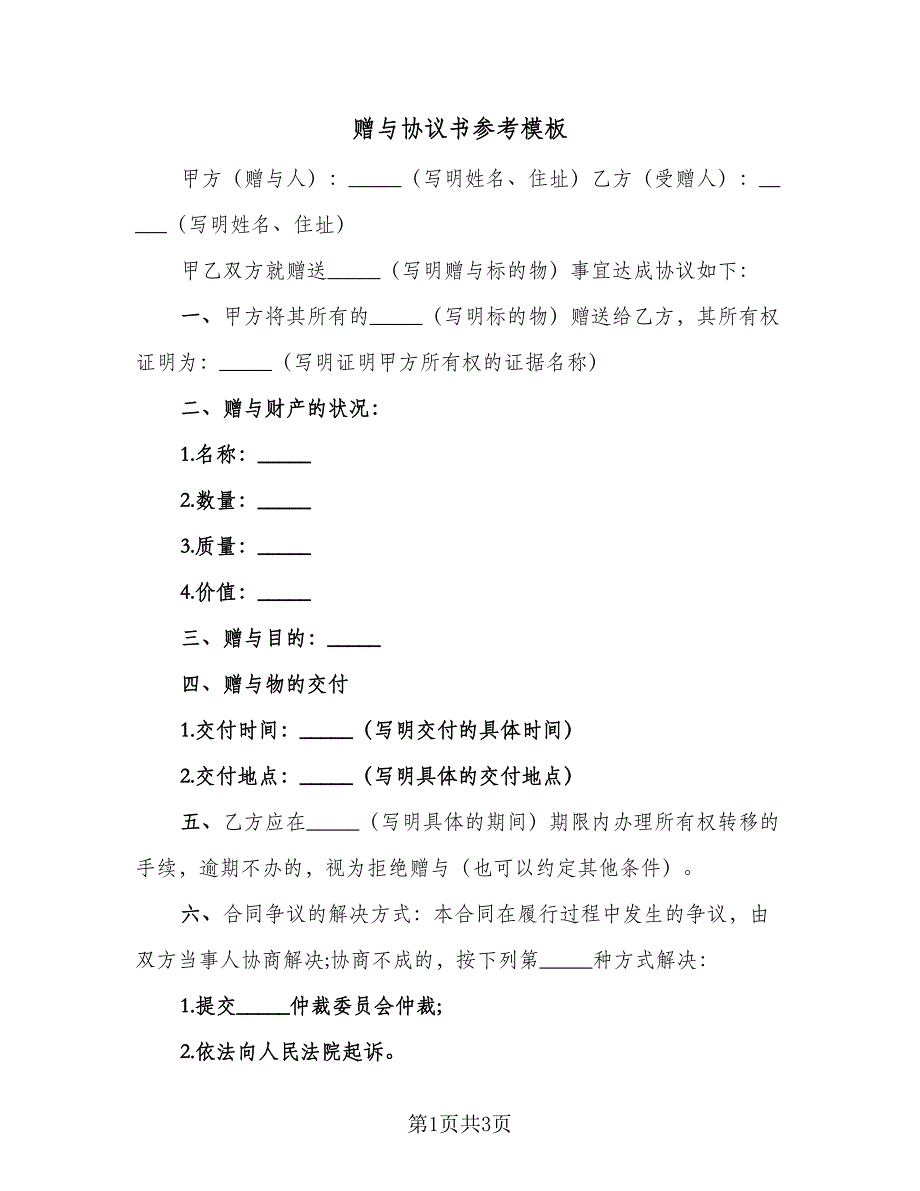 赠与协议书参考模板
甲方（赠与人）：_____（写明姓名、住址）乙方（受赠人）：__
___（写明姓名、住址）
甲乙双方就赠送_____（写明赠与标的物）事宜达成协议如下：
一、甲方将其所有的_____（写明标的物）赠送给乙方，其所有权
证明为：_____（写明证明甲方所有权的证据名称）
二、赠与财产的状况：
1.名称：_____
2.数量：_____
3.质量：_____
4.价值：_____
三、赠与目的：_____
四、赠与物的交付
1.交付时间：_____（写明交付的具体时间）
2.交付地点：_____（写明具体的交付地点）
五、乙方应在_____（写明具体的期间）期限内办理所有权转移的
手续，逾期不办的，视为拒绝赠与（也可以约定其他条件）。
六、合同争议的解决方式：本合同在履行过程中发生的争议，由
双方当事人协商解决;协商不成的，按下列第_____种方式解决：
1.提交_____仲裁委员会仲裁;
2.依法向人民法院起诉。
第1页共3页